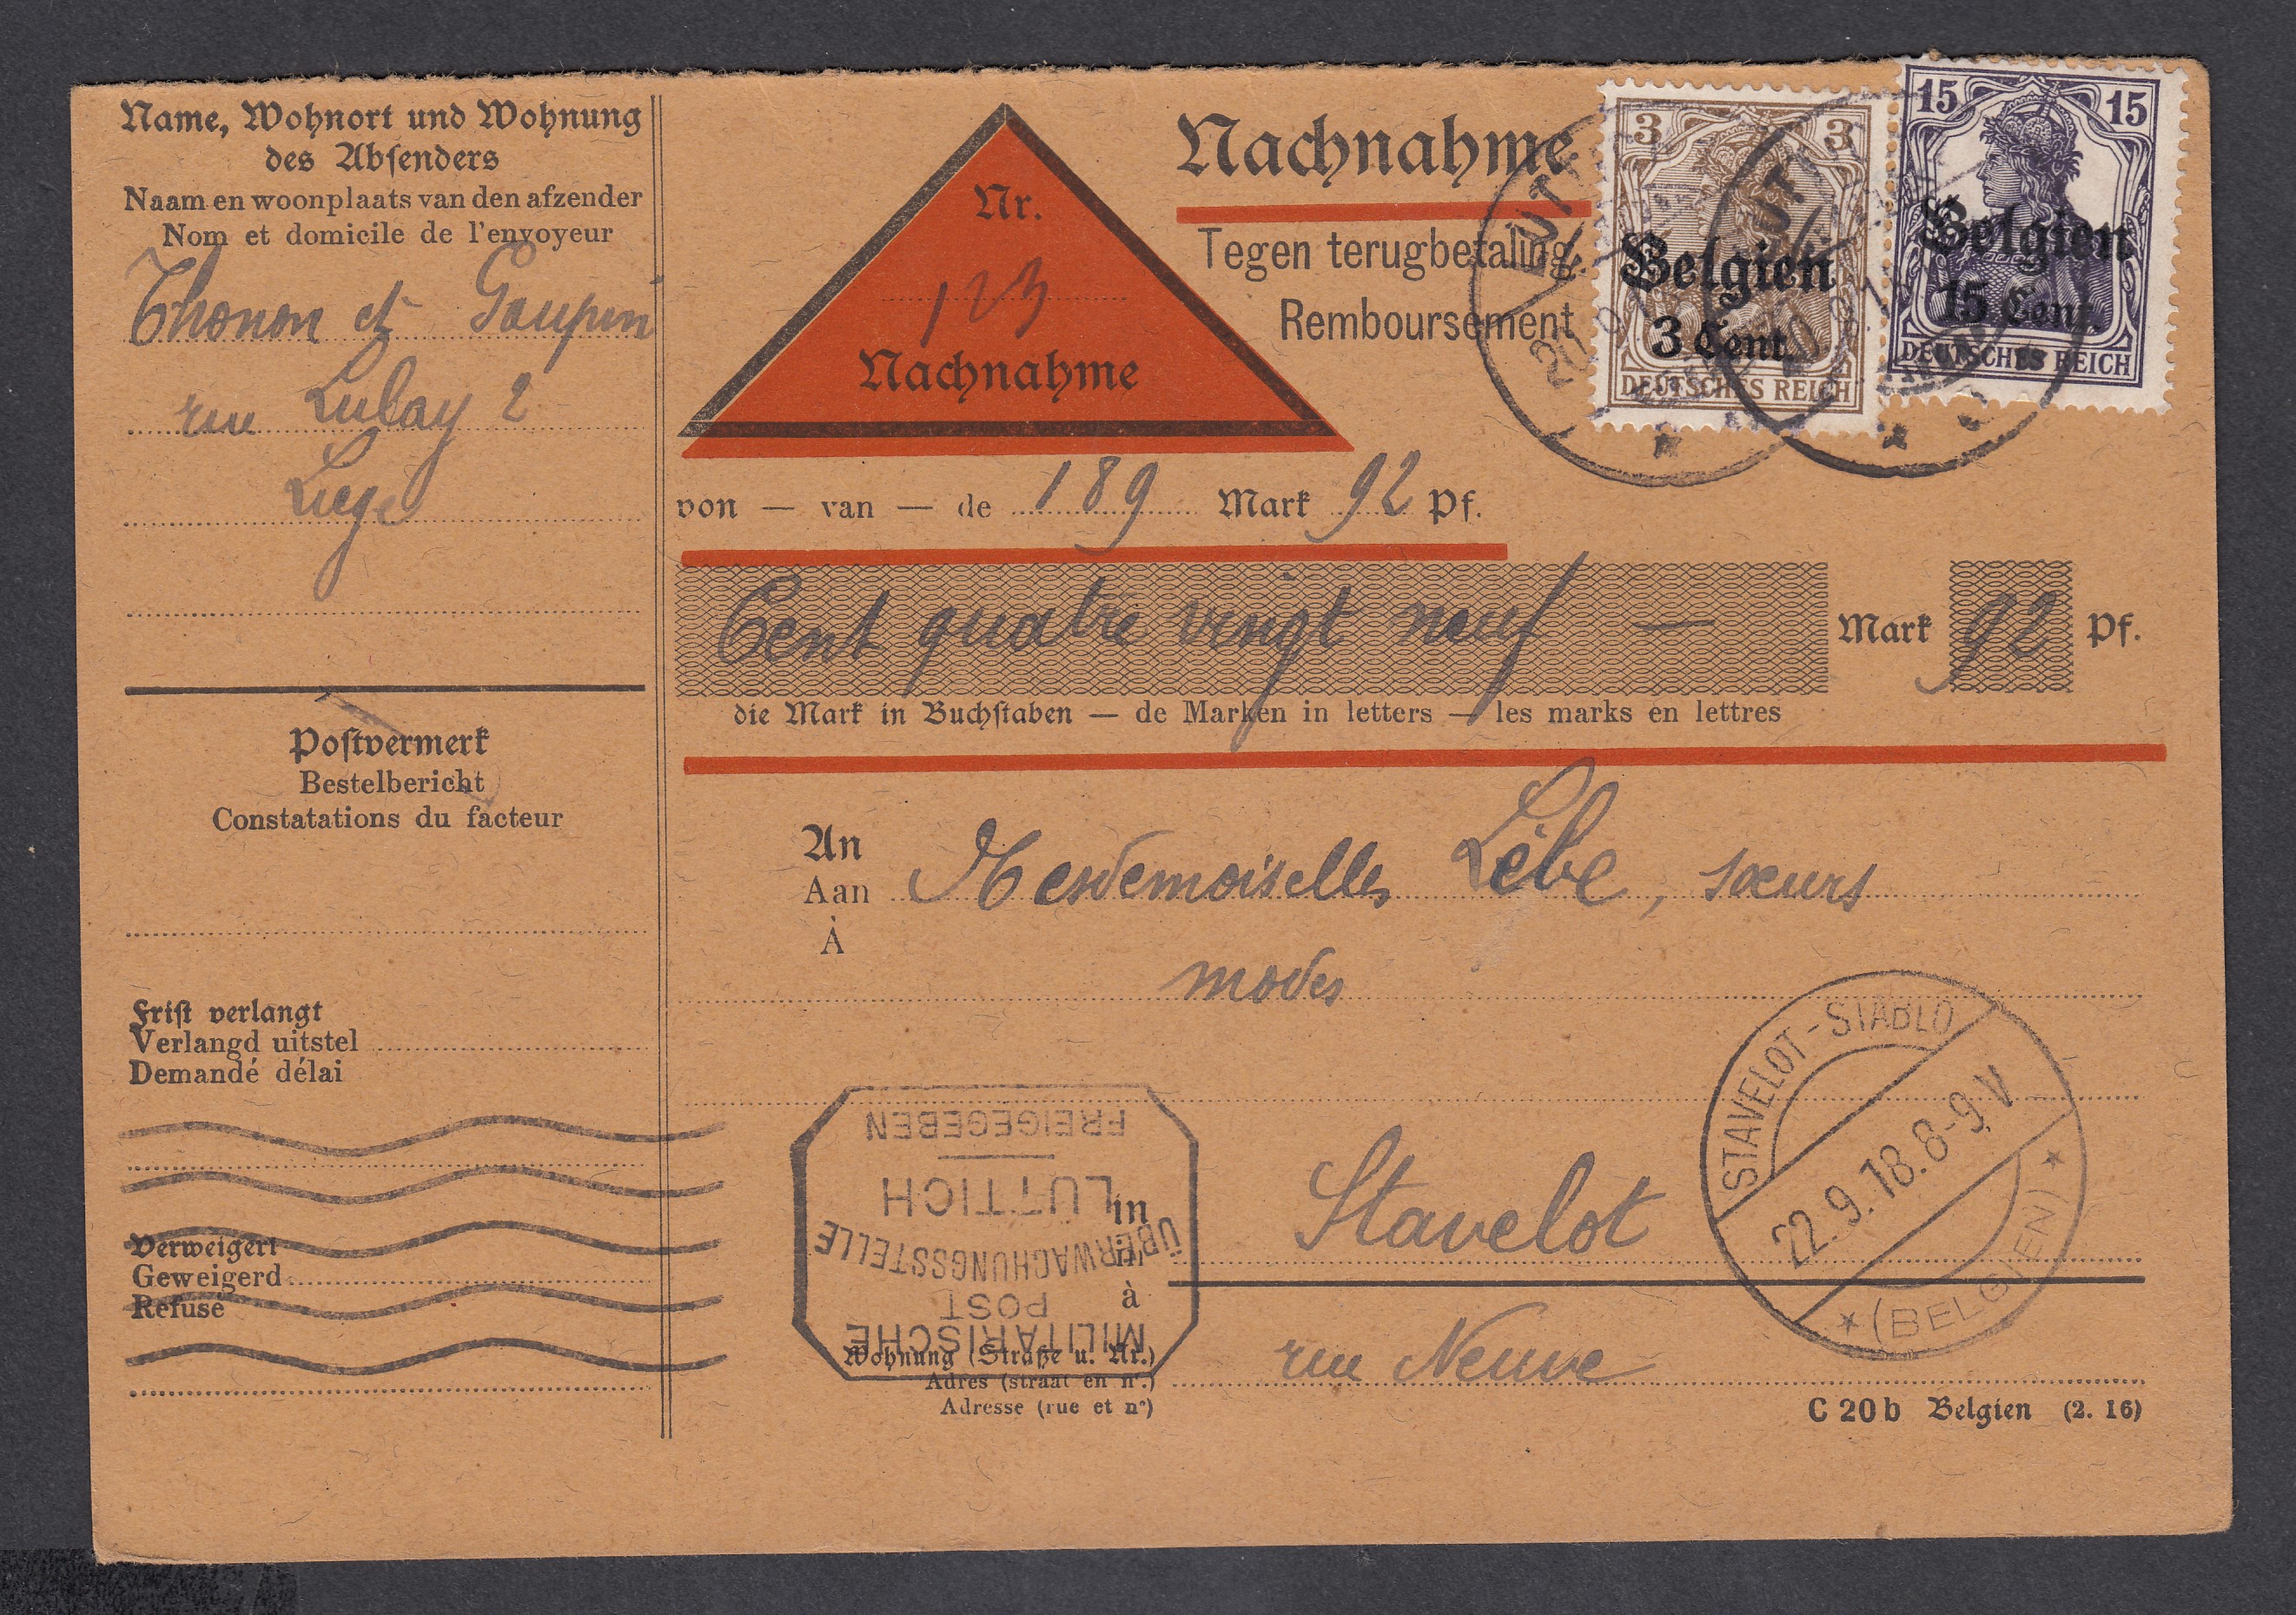 Name, Wohnort und Wohnung
des Absenders
Naam en woonplaats van den afzender
Nom et domicile de l'envoyeur
Thonon et Goupin
rue Lulay 2
Liege
Postvermerk
Bestelbericht
Constatations du facteur
Frist verlangt
Verlangd uitstel
Demandé délai
Verweigert
Geweigerd
Refuse
Nr.
123
Nachnahme
Nachnahme
Tegen terugbetaling.
Remboursement
3 3
Belgien
3 Cent.
DEUTSCHES REICH
15 15
Belgien
15 Cent.
DEUTSCHES REICH
von — van — de 189 Mark 92 Pf.
Cent quatre vingt neuf — Mark 92 Pf.
die Mark in Buchstaben — de Marken in letters — les marks en lettres
An
Aan
À
Mesdemoiselles Lèbe, sœurs
modes
STAVELOT-STABLO
22.9.18.8-9.V
(BELGIEN)
in
à
Stavelot
MILITÄRISCHE
POST
ÜBERWACHUNGSSTELLE
LÜTTICH
FREIGEGEBEN
Wohnung (Straße u. Nr.)
Adres (straat en nr.)
Adresse (rue et n°)
rue Neuve
C 20 b Belgien (2. 16)